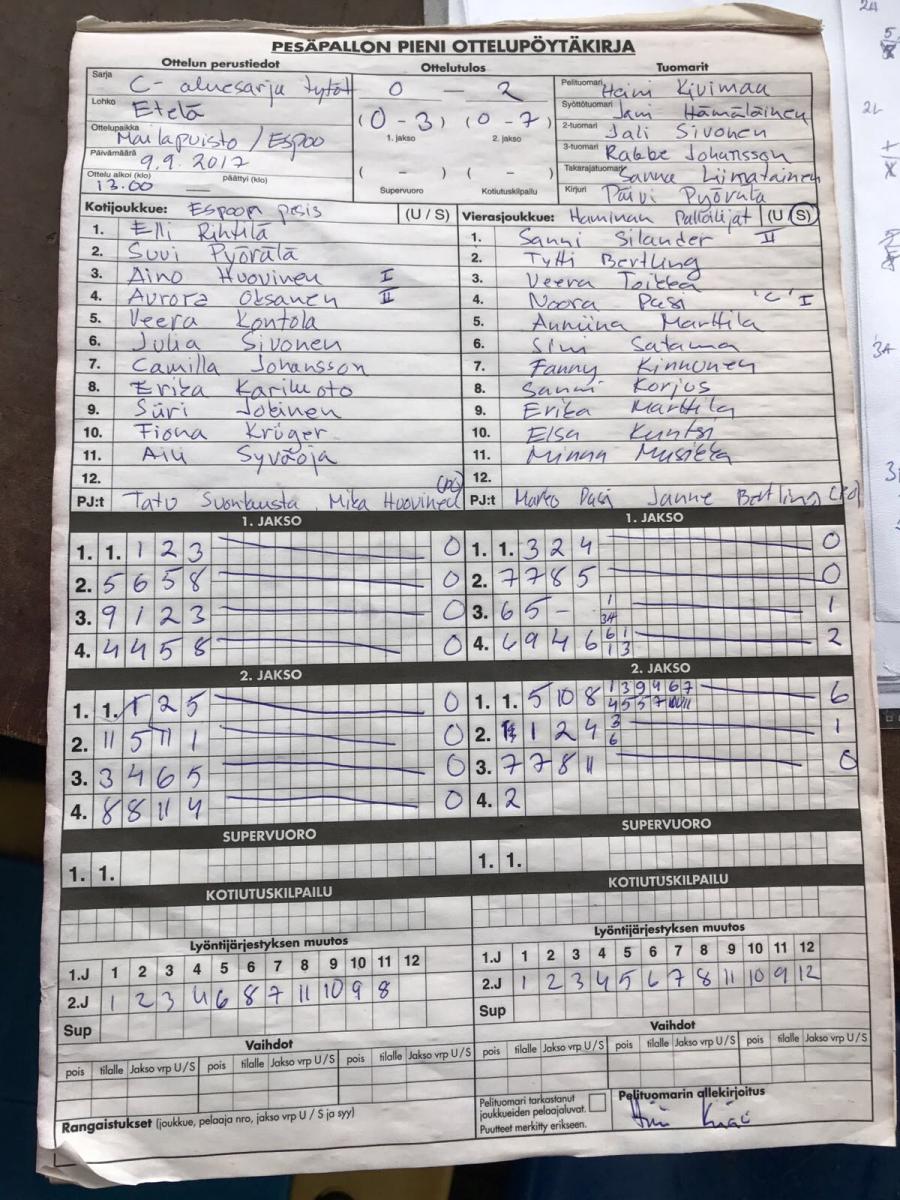 PESÄPALLON PIENI OTTELUPÖYTÄKIRJA
Ottelun perustiedot Ottelutulos Tuomarit
Sarja C-aluesarja tytöt 0 — 2 Pelituomari Heini Kivimau
Lohko Etelä Syöttötuomari Jani Hämäläinen
(0 - 3) (0 - 7) 2-tuomari Jali Sivonen
Ottelupaikka Mailapuisto / Espoo 1. jakso 2. jakso 3-tuomari Rabbe Johansson
Päivämäärä 9.9.2017 ( - ) ( - ) Takarajatuomari Sanna Liimatainen
Ottelu alkoi (klo) 13.00 — päättyi (klo) Supervuoro Kotiutuskilpailu Kirjuri Päivi Pyörälä
Kotijoukkue: Espoon pesis (U / S) Vierasjoukkue: Haminan Palloilijat (U / S)
1. Elli Rihtilä 1. Sanni Silander II
2. Suvi Pyörälä 2. Tytti Bertling
3. Aino Huovinen I 3. Veera Toikka
4. Aurora Oksanen II 4. Noora Pasi "C" I
5. Veera Kontola 5. Anniina Marttila
6. Julia Sivonen 6. Sini Satama
7. Camilla Johansson 7. Fanny Kinnunen
8. Erika Karikoto 8. Sanni Korjus
9. Siiri Jokinen 9. Erika Marttila
10. Fiona Krüger 10. Elsa Kuntsi
11. Aili Syväoja 11. Minna Musikka
12. 12.
PJ:t Tatu Suontausta, Mika Huovinen PJ:t Marko Pasi Janne Bertling
1. JAKSO 1. JAKSO
1. 1. 1 2 3 0 1. 1. 3 2 4 0
2. 5 6 5 8 0 2. 7 7 8 5 0
3. 9 1 2 3 0 3. 6 5 - 1 3H 1
4. 4 4 5 8 0 4. 6 9 4 6 6 1 1 3 2
2. JAKSO 2. JAKSO
1. 1. 1 2 5 0 1. 1. 5 10 8 1 3 9 4 6 7 4 5 5 7 10 11 6
2. 11 5 11 1 0 2. 1 2 4 3 6 1
3. 3 4 6 5 0 3. 7 7 8 11 0
4. 8 8 11 4 0 4. 2
SUPERVUORO SUPERVUORO
1. 1. 1. 1.
KOTIUTUSKILPAILU KOTIUTUSKILPAILU
Lyöntijärjestyksen muutos Lyöntijärjestyksen muutos
1.J 1 2 3 4 5 6 7 8 9 10 11 12 1.J 1 2 3 4 5 6 7 8 9 10 11 12
2.J 1 2 3 4 6 8 7 11 10 9 8 2.J 1 2 3 4 5 6 7 8 11 10 9 12
Sup Sup
Vaihdot Vaihdot
pois tilalle Jakso vrp U / S pois tilalle Jakso vrp U / S pois tilalle Jakso vrp U / S pois tilalle Jakso vrp U / S pois tilalle Jakso vrp U / S pois tilalle Jakso vrp U / S
Rangaistukset (joukkue, pelaaja nro, jakso vrp U / S ja syy) Pelituomari tarkastanut joukkueiden pelaajaluvat. Puutteet merkitty erikseen. Pelituomarin allekirjoitus